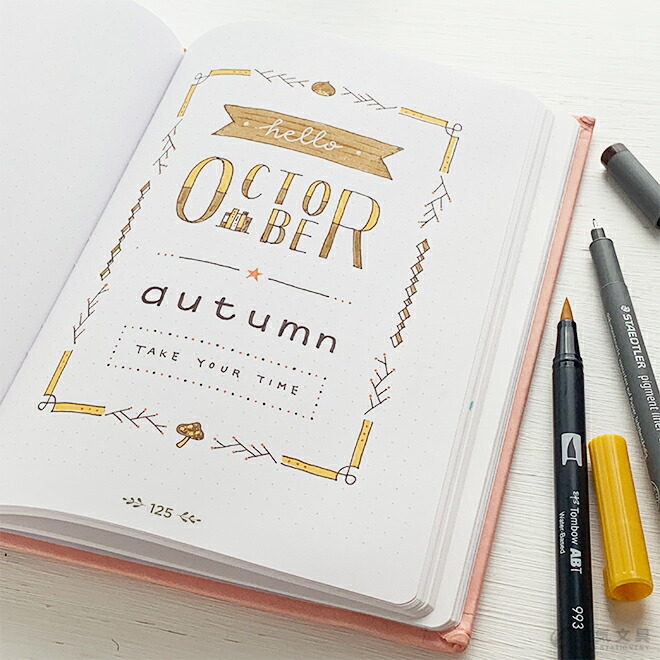 hello
OCTOBER
autumn
TAKE YOUR TIME
125
STAEDTLER
pigment liner
Tombow ABT
Water-Based
993
文具
STATIONERY